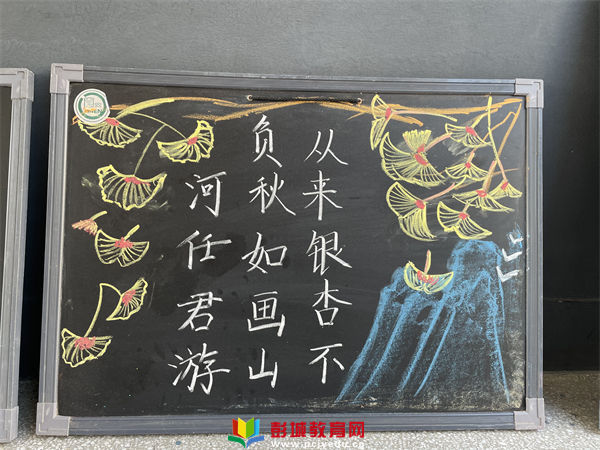 从来银杏不
负秋如画山
河任君游
彭城教育网